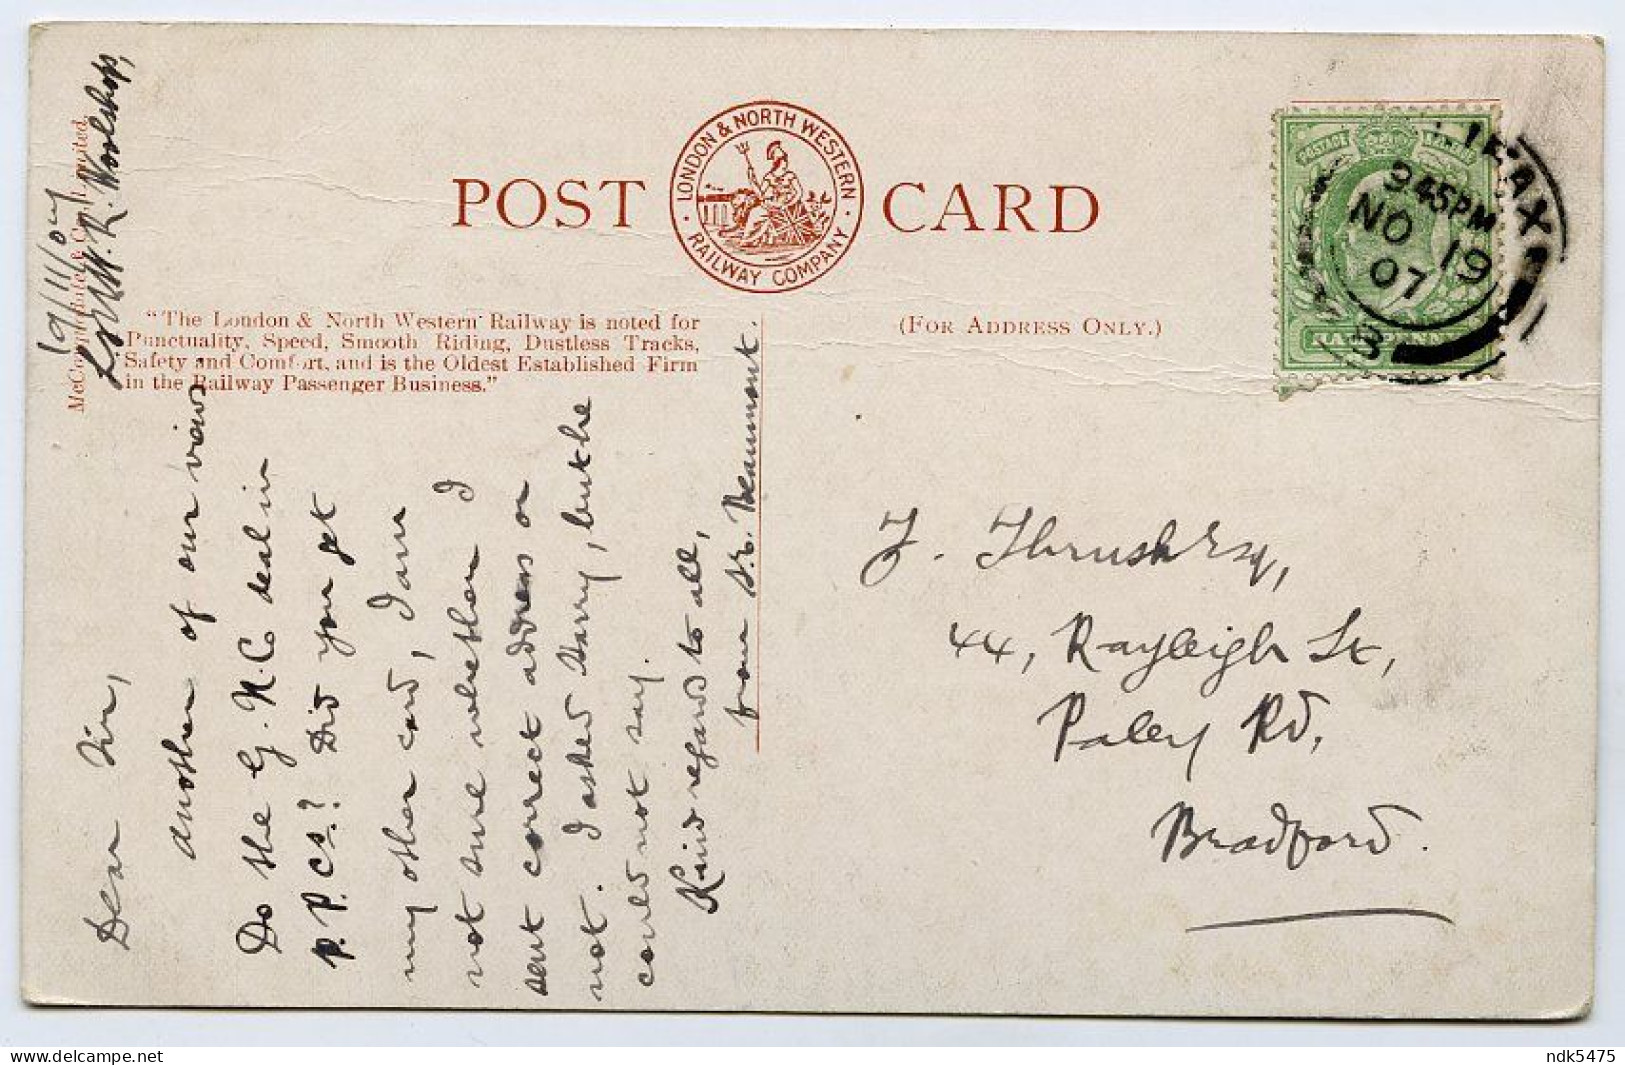 POST CARD
LONDON & NORTH WESTERN
RAILWAY COMPANY
"The London & North Western Railway is noted for
Punctuality, Speed, Smooth Riding, Dustless Tracks,
Safety and Comfort, and is the Oldest Established Firm
in the Railway Passenger Business."
(FOR ADDRESS ONLY.)
POSTAGE
HALFPENNY
HALIFAX
9 45PM
NO 19
07
3
McCorquodale & Co., Limited.
19/11/07
Workshops,
Dear Sir,
another of our views
Do the G.N.C. deal in
P.P.Cs? Did you get
my other card, I am
not sure whether I
sent correct address or
not. I asked Harry, but he
could not say.
Kind regards to all,
from Beaumont.
F. Thrush Esq,
44, Rayleigh St,
Paley Rd,
Bradford.
ndk5475